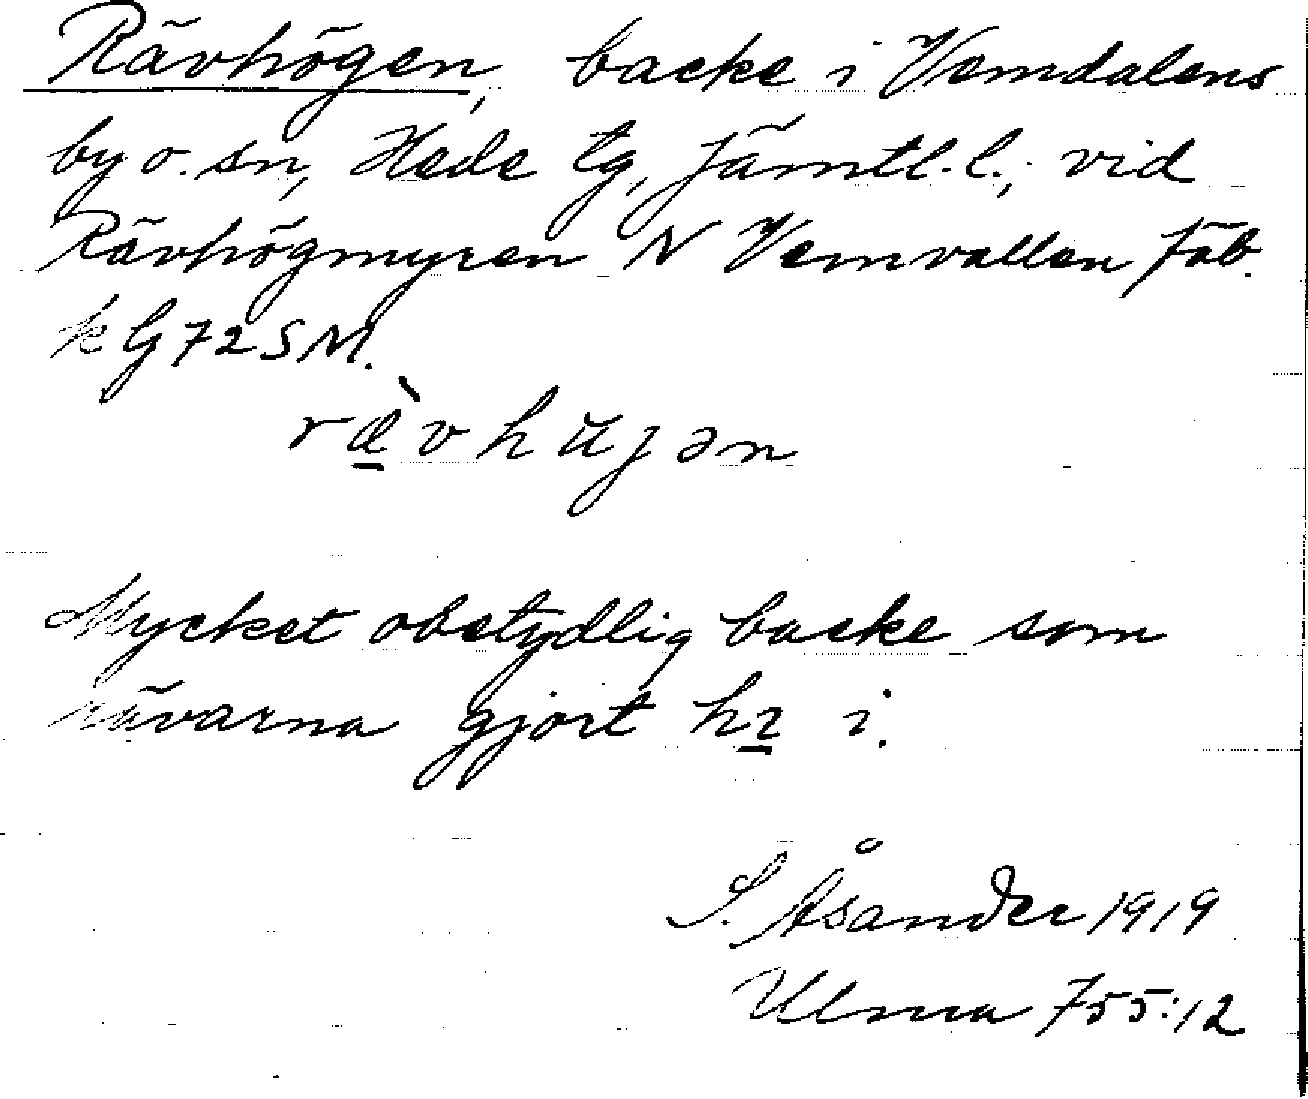 Rävhögen, backe i Vemdalens
by o. sn, Hede tg, Jämtl. l.; vid
Rävhögmyren N Vemvallen fäb.
k G 72 SM.
ræ̀vhŭjən
Mycket obetydlig backe som
rävarna gjort i.
S. Åsander 1919
Ulma 755:12